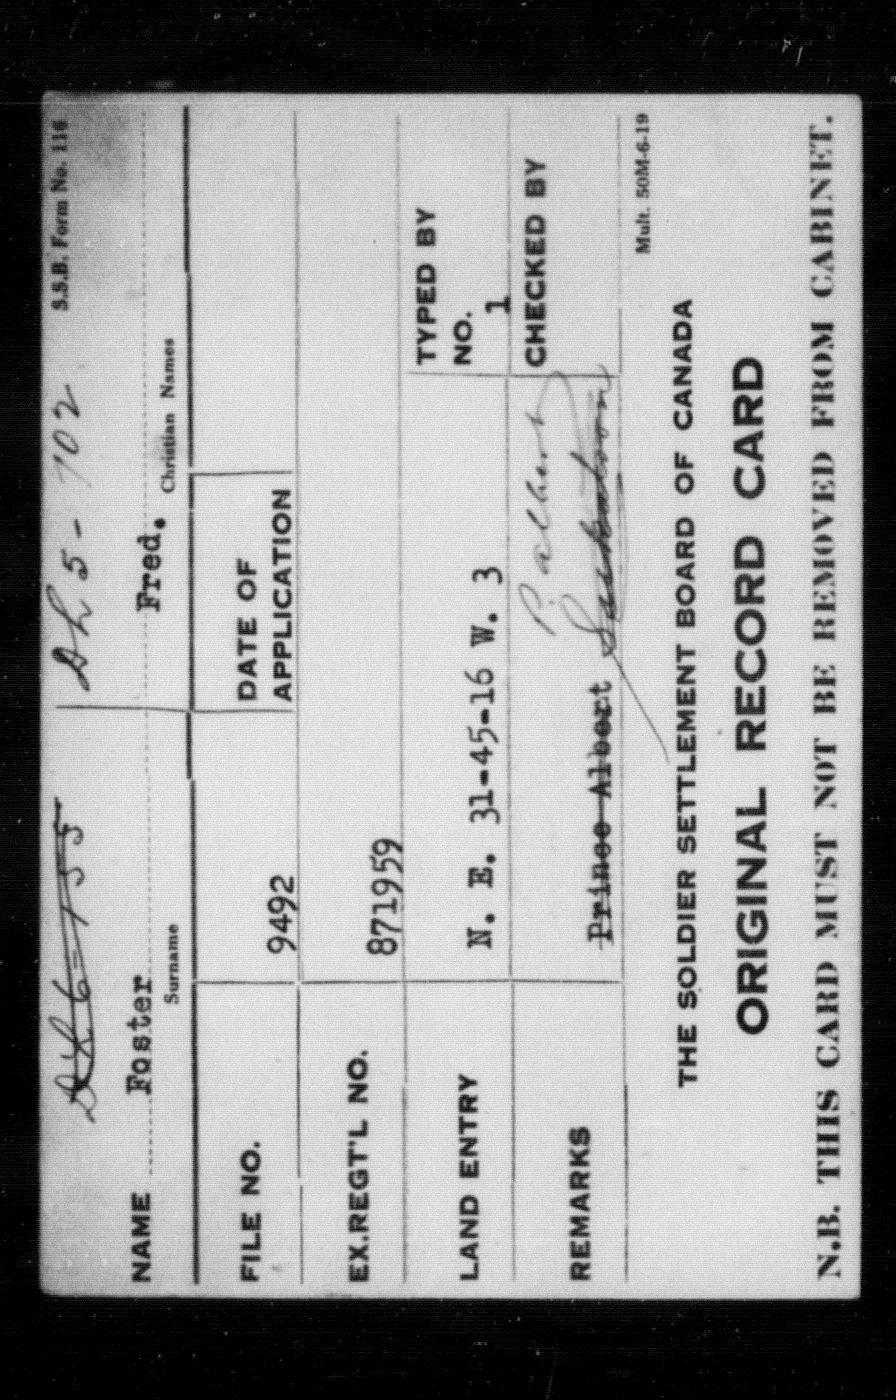 S.S.B. Form No. 116
DL 6-155 DL 5-702
NAME Foster Fred.
Surname Christian Names
FILE NO. 9492 DATE OF
APPLICATION
EX.REGT'L NO. 871959
LAND ENTRY N. E. 31-45-16 W. 3 TYPED BY
NO. 1
REMARKS Prince Albert Saskatoon P. Albert CHECKED BY
Mult. 50M-6-19
THE SOLDIER SETTLEMENT BOARD OF CANADA
ORIGINAL RECORD CARD
N.B. THIS CARD MUST NOT BE REMOVED FROM CABINET.